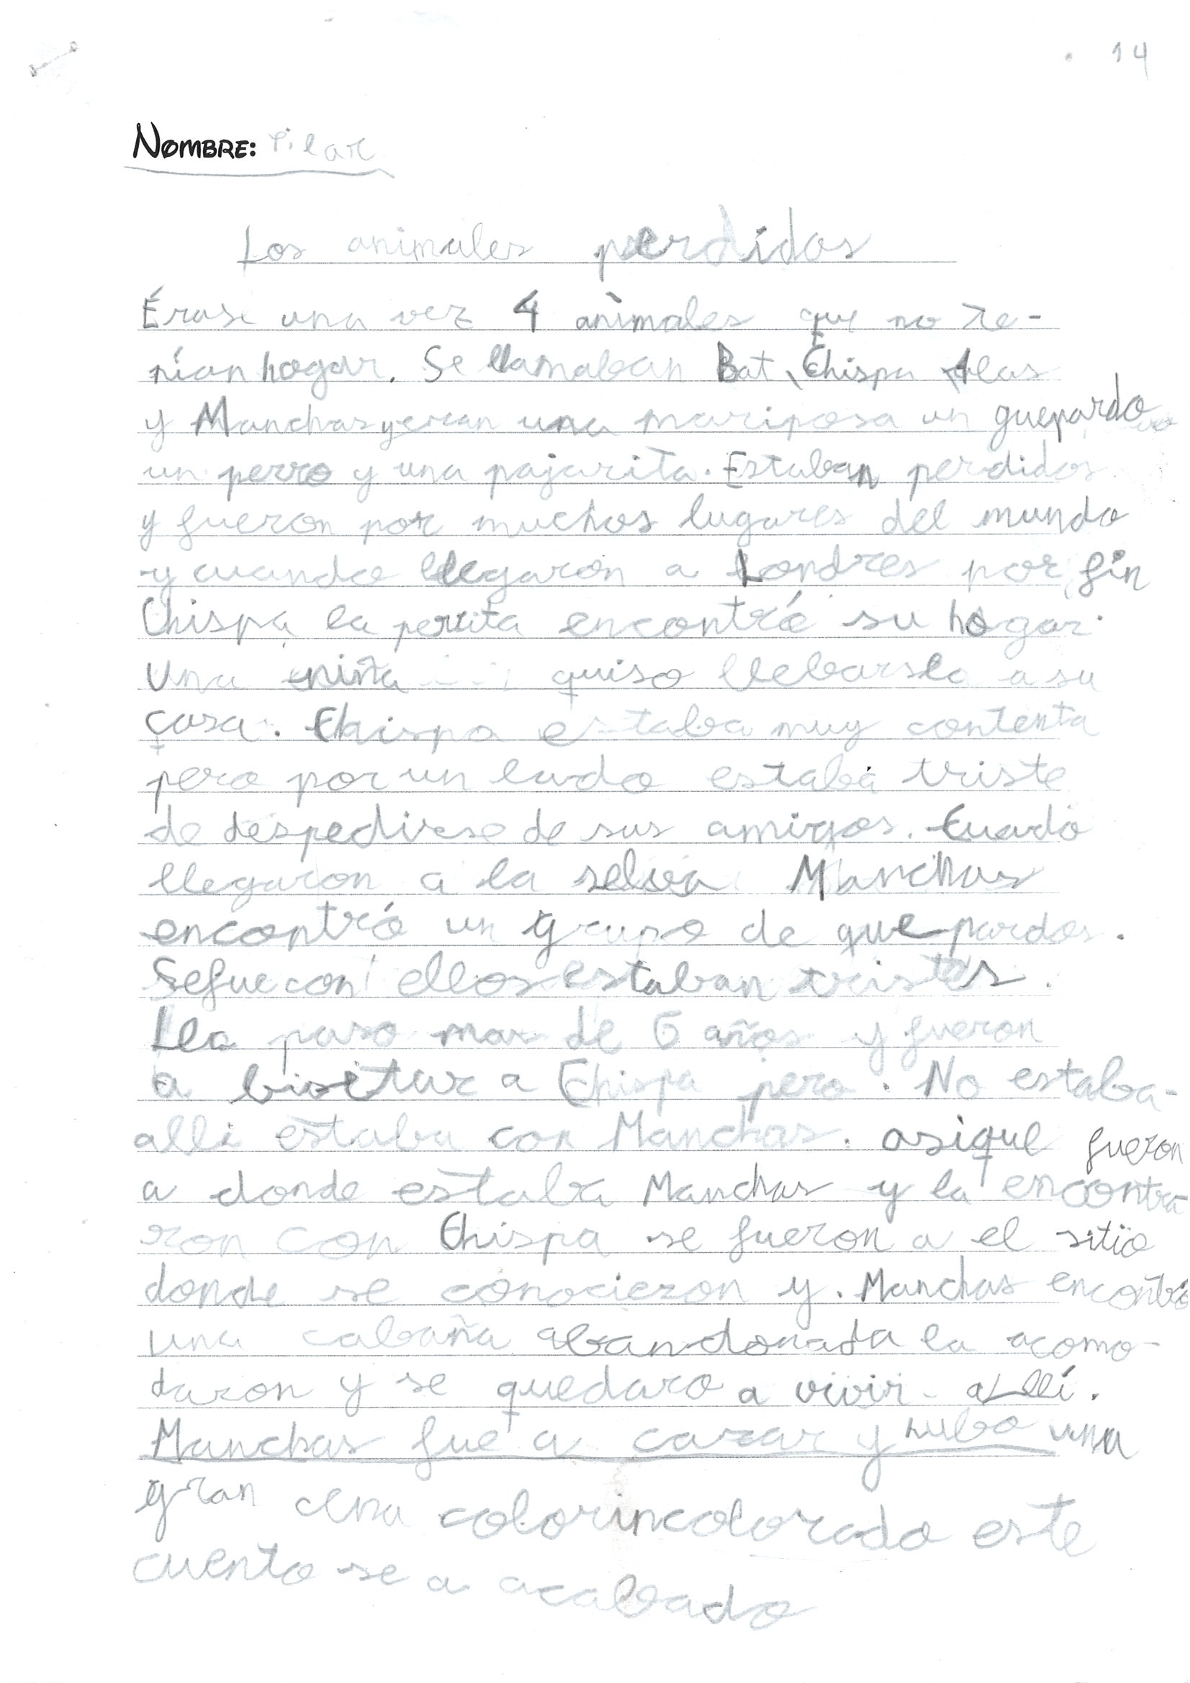 14
NOMBRE: Pilar
Los animales perdidos
Érase una vez 4 animales que no te-
nían hogar. Se llamaban Bat, Chispa, Alas
y Manchas y eran una mariposa un guepardo
un perro y una pajarita. Estaban perdidos
y fueron por muchos lugares del mundo
y cuando llegaron a Londres por fin
Chispa la perrita encontró su hogar.
Una niña quiso llebarsela a su
casa. Chispa estaba muy contenta
pero por un lado estaba triste
de despedirse de sus amigos. Cuado
llegaron a la selva Manchas
encontró un grupo de guepardos.
Se fue con ellos estaban tristes.
paso mas de 6 años y fueron
a bisitar a Chispa pero. No estaba-
alli estaba con Manchas. asique fueron
a donde estaba Manchas y la encontra-
ron con Chispa se fueron a el sitio
donde se conocieron y. Manchas encontró
una cabaña abandonada la acomo-
daron y se quedaro a vivir allí.
Manchas fue a cazar y hubo una
gran cena colorincolorado este
cuento se a acabado